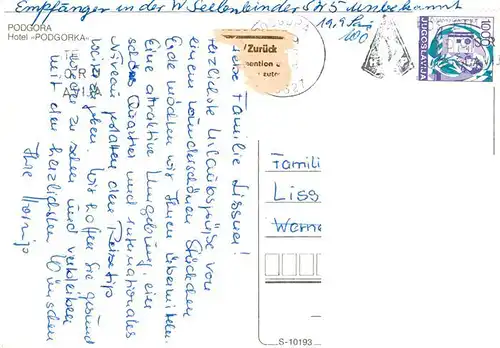 Empfänger in der W. Seelenbinder Str 5 unbekannt
19.9
PODGORA
Hotel «PODGORKA»
/Zurück
mention
1000
JUGOSLAVIJA
Liebe Familie Lissner!
Herzlichste Urlaubsgrüße von
einem wunderschönen Stückchen
Erde möchten wir Ihnen übermitteln.
Eine attraktive Umgebung, ein
schönes Quartier und internationales
Niveau geben den Reisetip
weiterzugeben. Wir hoffen Sie gesund
wieder zu sehen und verbleiben
mit den herzlichsten Wünschen
Ihre
Famili
Liss
Werne
S-10193